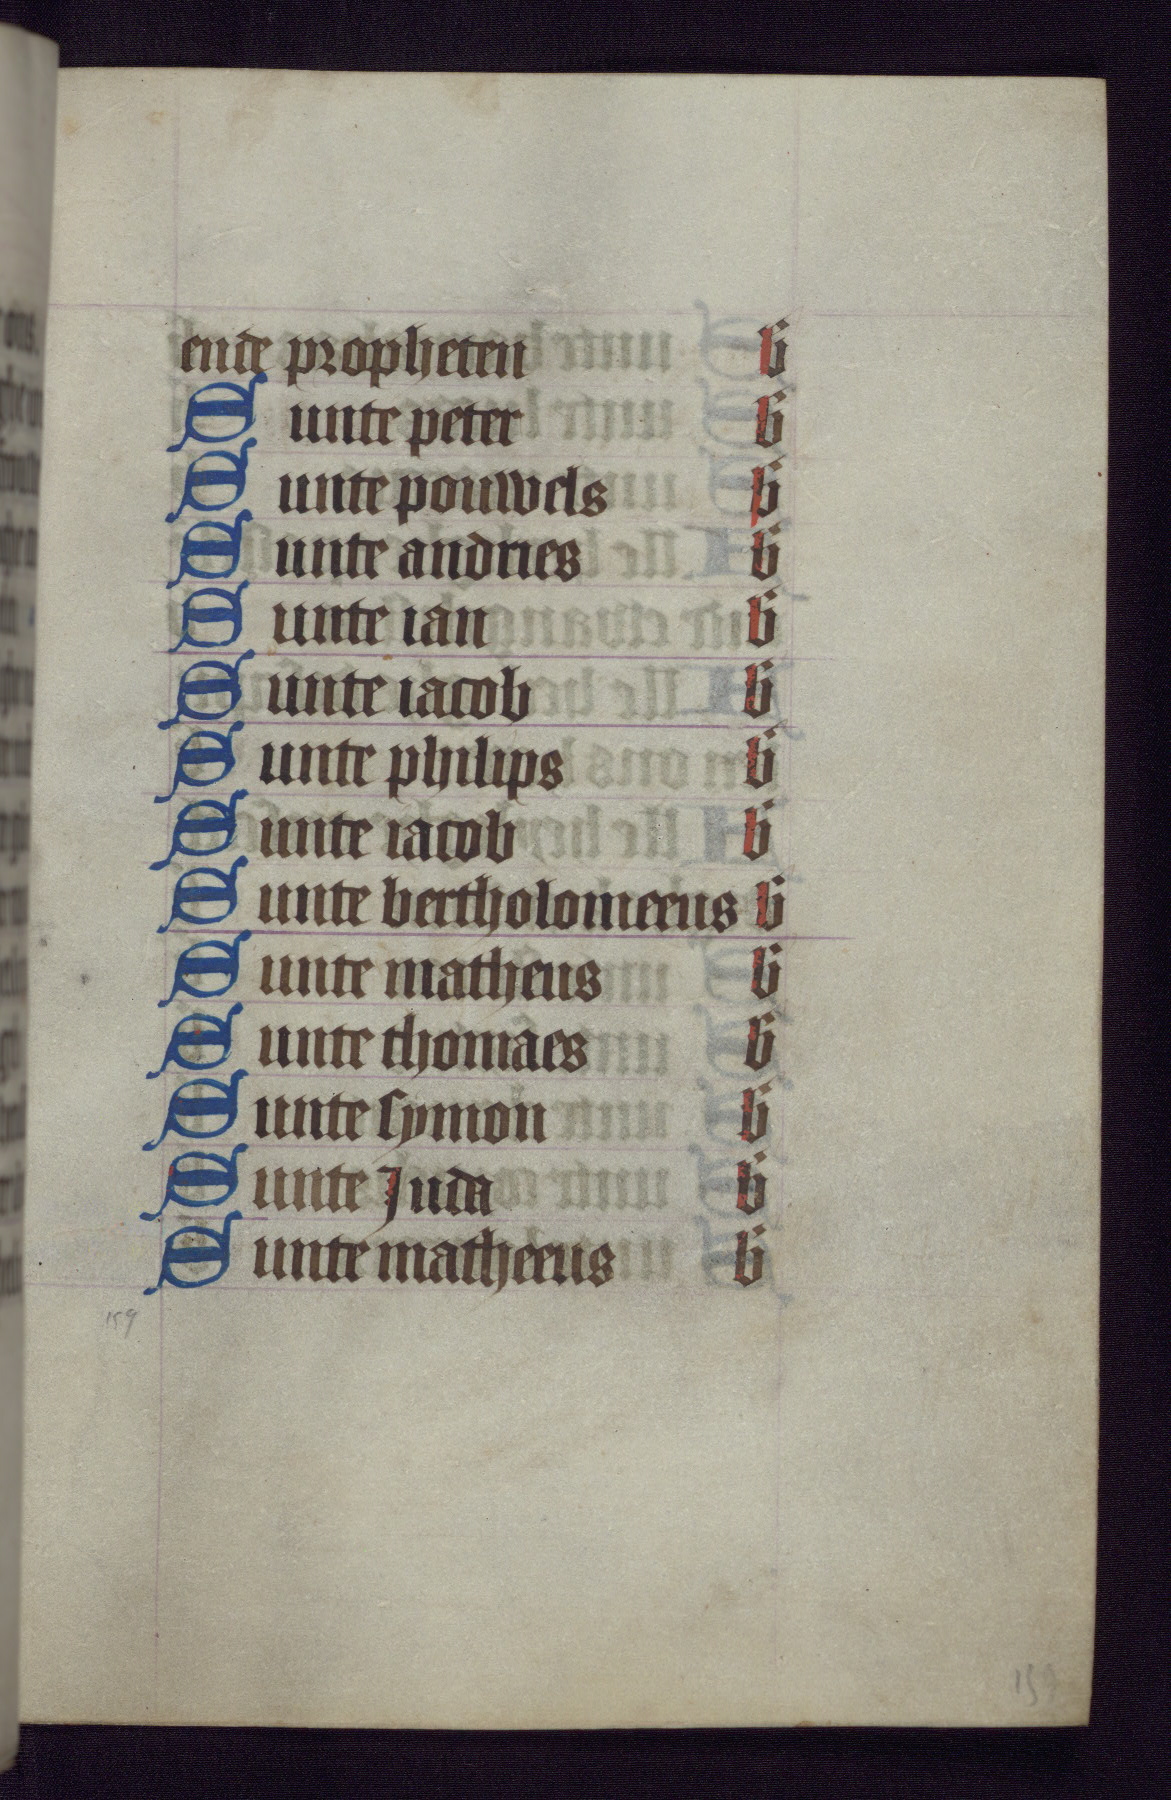 ende propheten b
Sunte peter b
Sunte pouwels b
Sunte andries b
Sunte ian b
Sunte iacob b
Sunte philips b
Sunte iacob b
Sunte bertholomeeus b
Sunte matheus b
Sunte thomaes b
Sunte symon b
Sunte Juda b
Sunte matheeus b
159